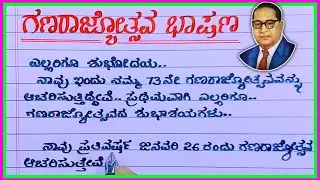 ಗಣರಾಜ್ಯೋತ್ಸವ ಭಾಷಣ
ಎಲ್ಲರಿಗೂ ಶುಭೋದಯ..
ನಾವು ಇಂದು ನಮ್ಮ 73ನೇ ಗಣರಾಜ್ಯೋತ್ಸವವನ್ನು
ಆಚರಿಸುತ್ತಿದ್ದೇವೆ.. ಪ್ರಥಮವಾಗಿ ಎಲ್ಲರಿಗೂ
ಗಣರಾಜ್ಯೋತ್ಸವದ ಶುಭಾಶಯಗಳು..
ನಾವು ಪ್ರತಿವರ್ಷ ಜನವರಿ 26 ರಂದು ಗಣರಾಜ್ಯೋತ್ಸವ
ಆಚರಿಸುತ್ತೇವೆ